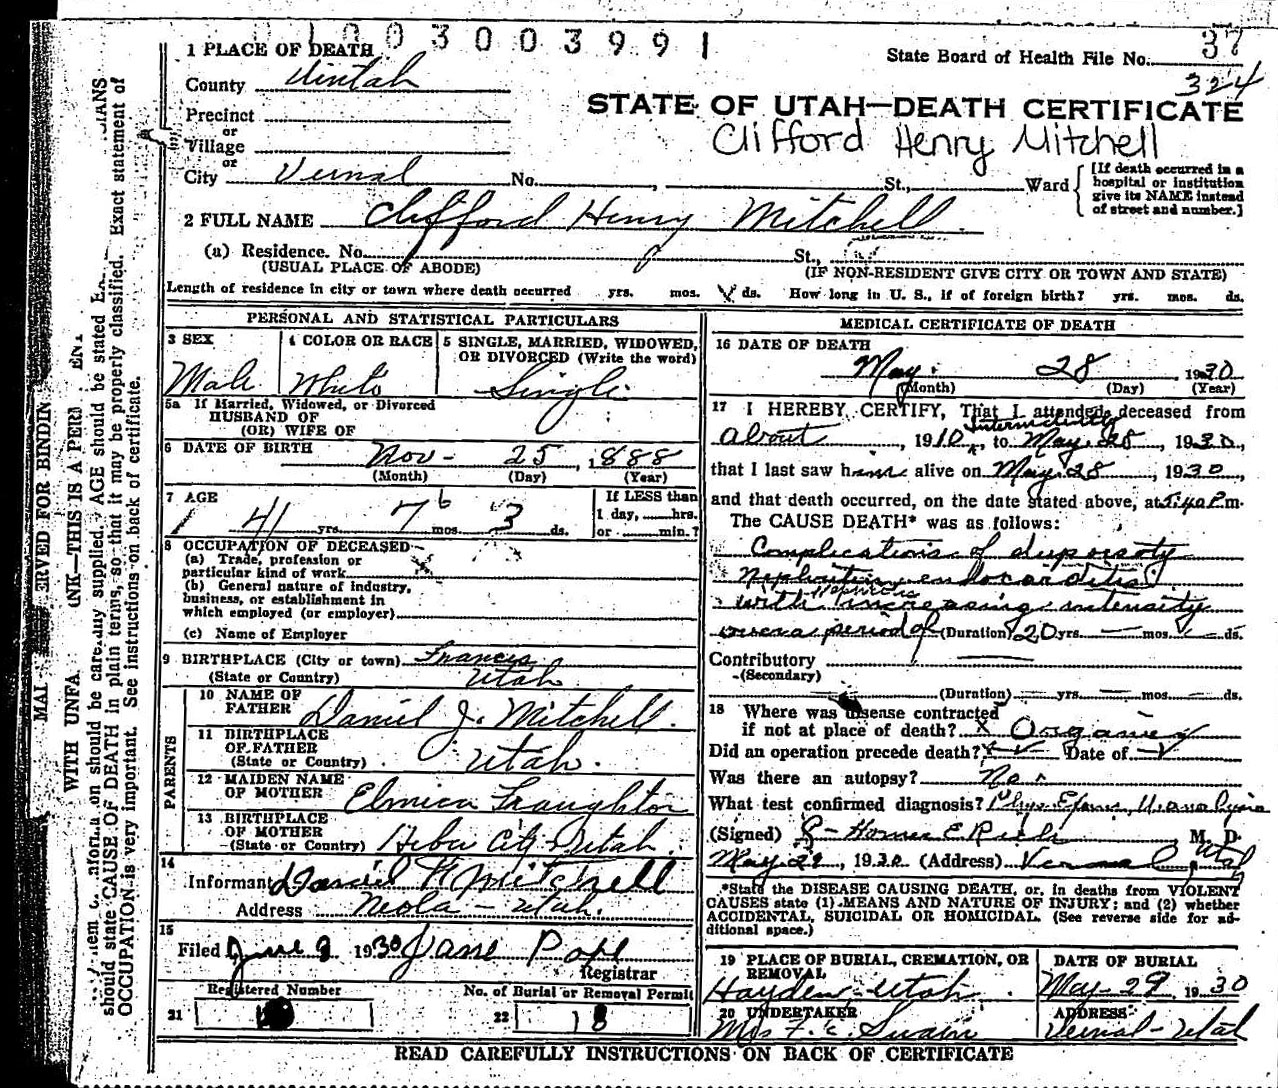 1003003991
37
1 PLACE OF DEATH
State Board of Health File No.
324
County Uintah
STATE OF UTAH—DEATH CERTIFICATE
Precinct
or
Village
Clifford Henry Mitchell
or
City Vernal No. , St., Ward
[If death occurred in a hospital or institution give its NAME instead of street and number.]
2 FULL NAME Clifford Henry Mitchell
(a) Residence. No. St.,
(USUAL PLACE OF ABODE) (IF NON-RESIDENT GIVE CITY OR TOWN AND STATE)
Length of residence in city or town where death occurred yrs. mos. ds. How long in U. S., if of foreign birth? yrs. mos. ds.
PERSONAL AND STATISTICAL PARTICULARS
3 SEX Male
4 COLOR OR RACE White
5 SINGLE, MARRIED, WIDOWED, OR DIVORCED (Write the word) Single
5a If Married, Widowed, or Divorced
HUSBAND OF
(OR) WIFE OF
6 DATE OF BIRTH Nov- 25, 1888
(Month) (Day) (Year)
7 AGE
41 yrs. 7 6 mos. 3 ds.
If LESS than
1 day, hrs.
or min.?
8 OCCUPATION OF DECEASED
(a) Trade, profession or
particular kind of work
(b) General nature of industry,
business, or establishment in
which employed (or employer)
(c) Name of Employer
9 BIRTHPLACE (City or town) Francis
(State or Country) Utah
PARENTS
10 NAME OF FATHER Daniel J. Mitchell
11 BIRTHPLACE OF FATHER
(State or Country) Utah.
12 MAIDEN NAME OF MOTHER Elmira
13 BIRTHPLACE OF MOTHER
(State or Country) Heber City Utah.
14
Informant Daniel Mitchell
Address Neola - Utah.
15
Filed June 9 1930 Jane Pope
Registrar
Registered Number
21
No. of Burial or Removal Permit
22 18
MEDICAL CERTIFICATE OF DEATH
16 DATE OF DEATH
May 28 1930
(Month) (Day) (Year)
17 I HEREBY CERTIFY, That I attended deceased from
Intermittently
About , 1910, to May 28, 1930,
that I last saw him alive on May 28, 1930,
and that death occurred, on the date stated above, at 5:40 P.m.
The CAUSE DEATH* was as follows:
Complications of
endocarditis
with increasing intensity
over a period of (Duration) 20 yrs. — mos. — ds.
Contributory
(Secondary)
(Duration) yrs. mos. ds.
18 Where was disease contracted
if not at place of death?
Did an operation precede death? Date of
Was there an autopsy? No
What test confirmed diagnosis? Phys Exam, Uranalysis
(Signed) Homer E Rich M. D.
May 29, 1930 (Address) Vernal, Utah
*State the DISEASE CAUSING DEATH, or, in deaths from VIOLENT
CAUSES state (1) MEANS AND NATURE OF INJURY; and (2) whether
ACCIDENTAL, SUICIDAL OR HOMICIDAL. (See reverse side for ad-
ditional space.)
19 PLACE OF BURIAL, CREMATION, OR REMOVAL
Hayden, Utah
DATE OF BURIAL
May 29 1930
20 UNDERTAKER
Mrs F. C. Swain
ADDRESS
Vernal - Utah
READ CAREFULLY INSTRUCTIONS ON BACK OF CERTIFICATE
should state CAUSE OF DEATH in plain terms, so that it may be properly classified. Exact statement of
OCCUPATION is very important. See instructions on back of certificate.